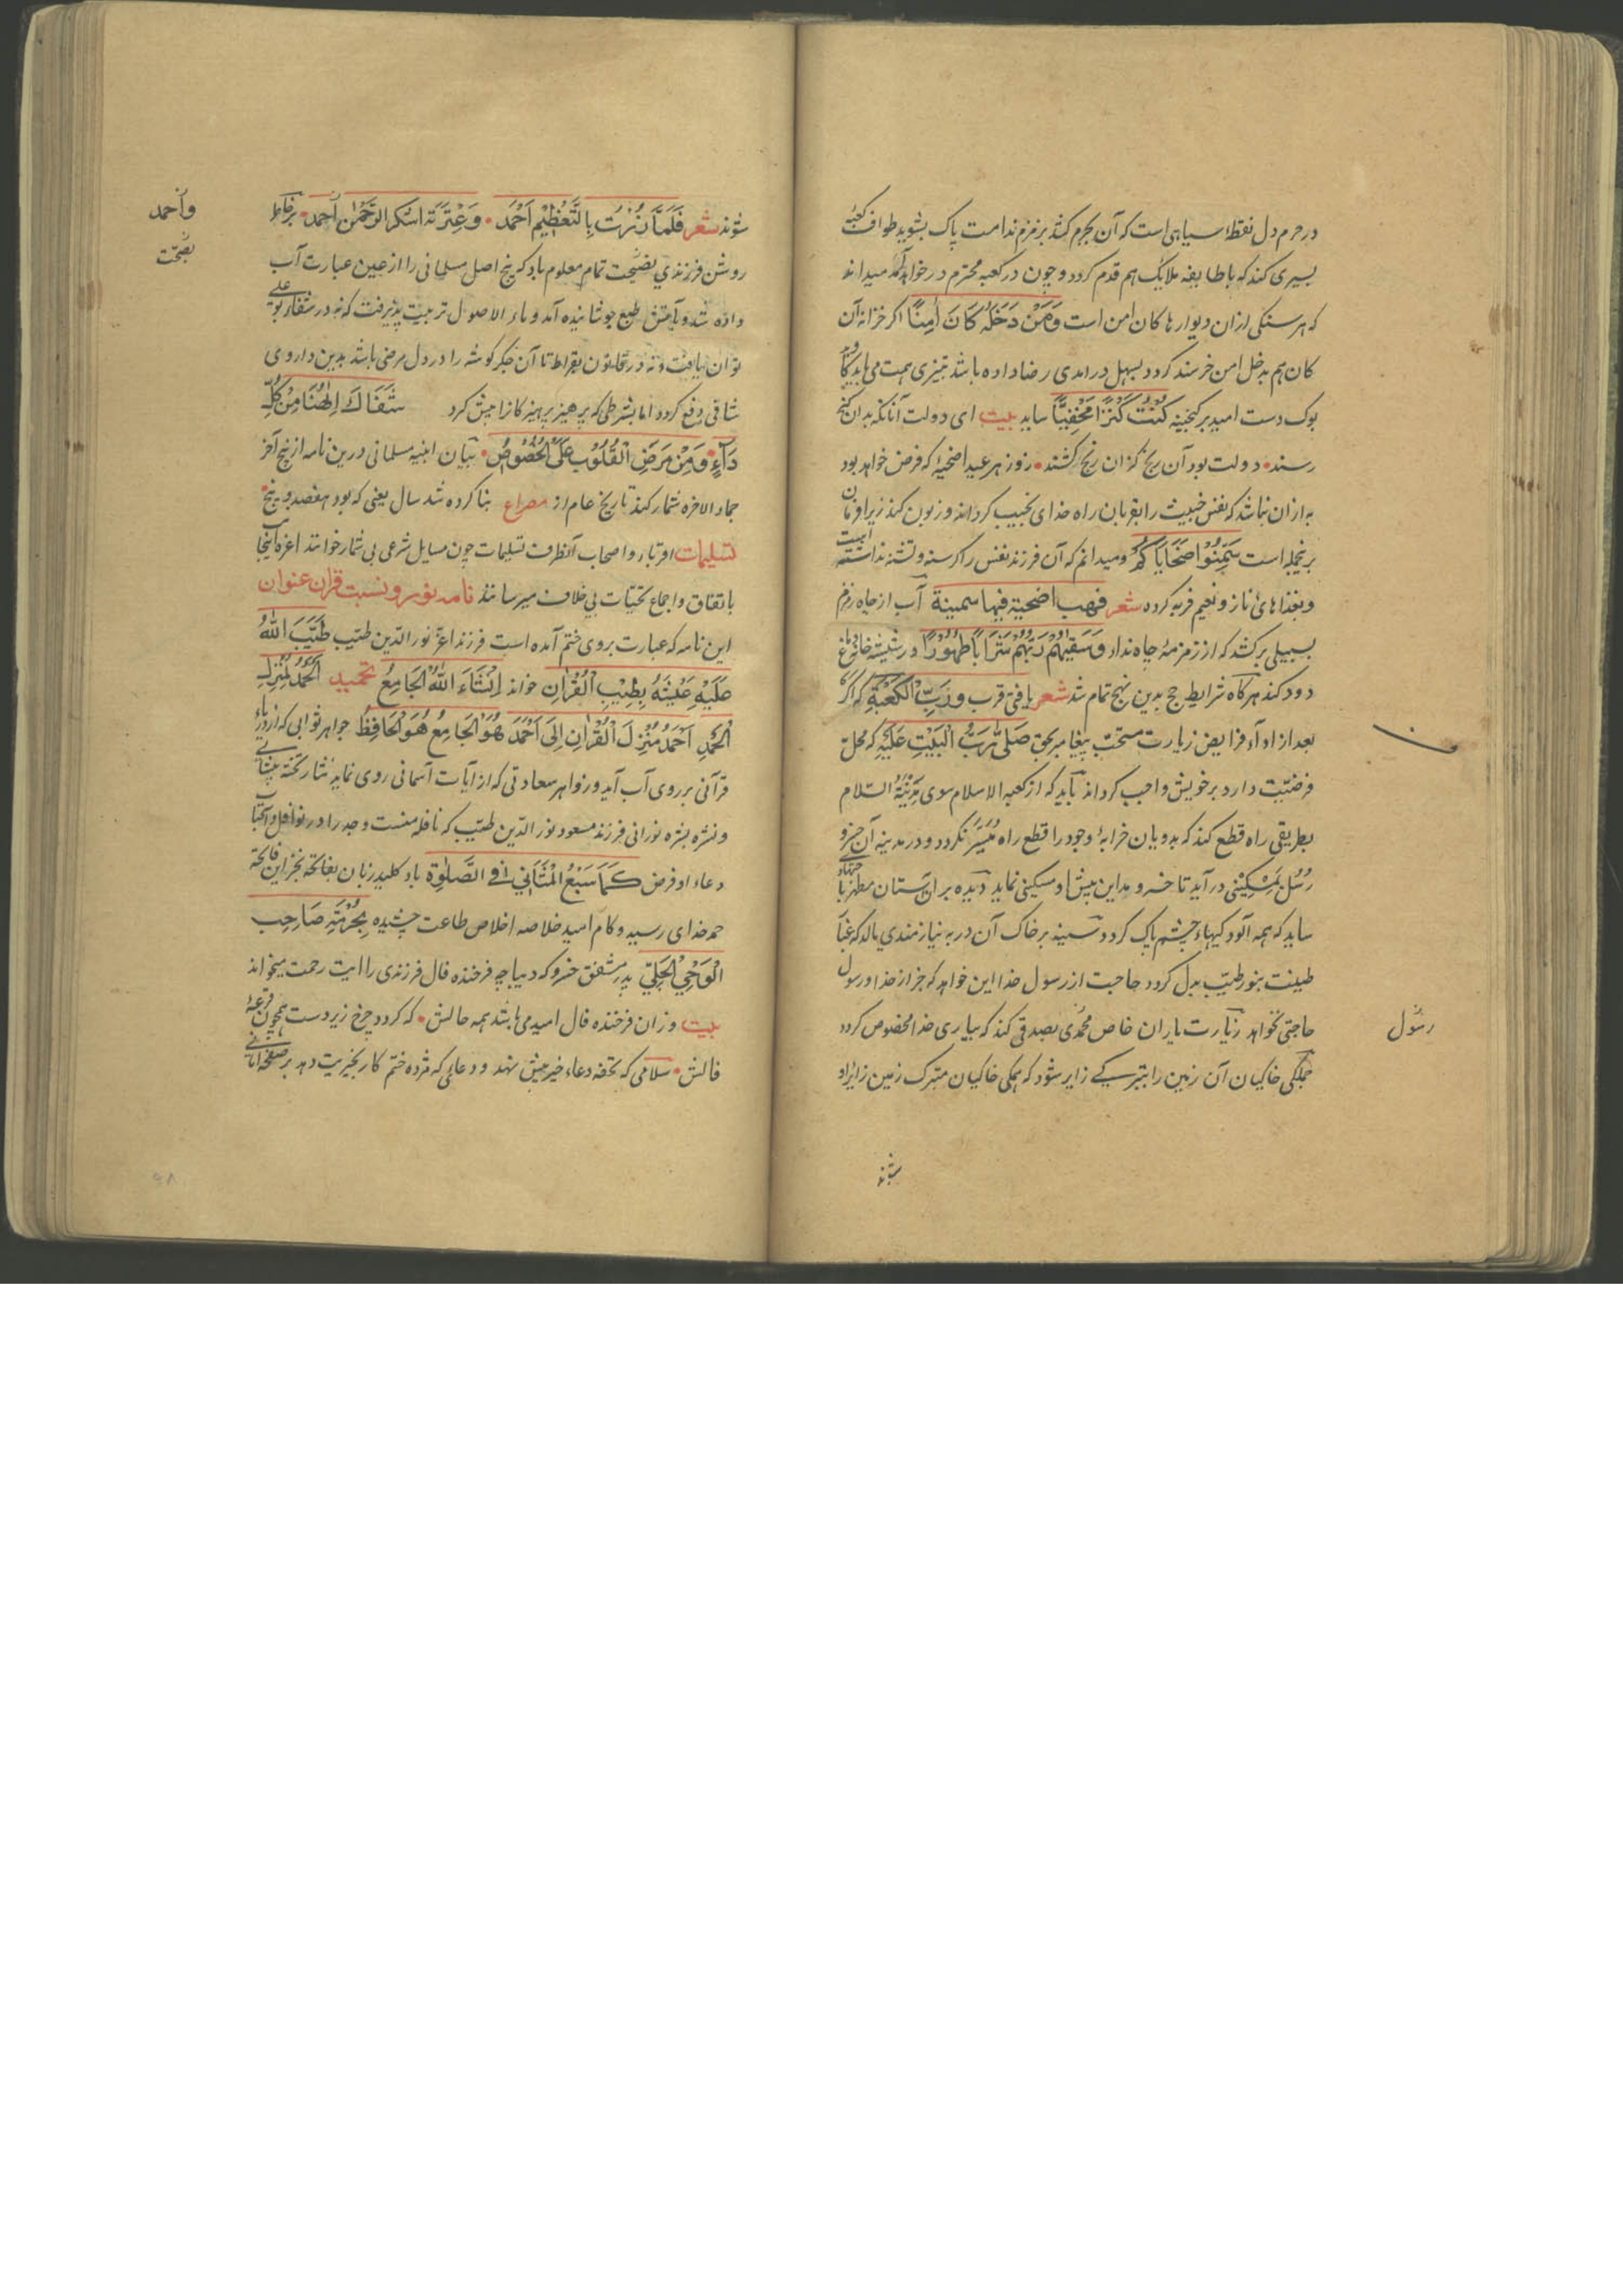 در حرم دل نقطهٔ سیاهی است که آن بجرم کشد بزمزم ندامت پاک بشوید طواف کعبهٔ
بسیری کند که با طایفه ملایک هم قدم کردد و چون در کعبه محترم در خواهد آمد میداند
که هر سنکی از ان دیوارها کان امن است وَمَنْ دَخَلَهُ كَانَ اٰمِنًا اکر خزانه آن
کان هم بدخل امن خرسند کردد بسهل درامدی رضا داده باشد تیزی همت می باید کا
بوک دست امید بر کنجینه كُنْتُ كَنْزًا مَخْفِيًّا ساید بیت ای دولت آنانکه بدان کنج
رسند • دولت بود آن رنج کزان رنج کشند • روز هر عید اضحیهٔ که فرض خواهد بود
به از ان نباشد که نفس خبیث را بقربان راه خدای نجیب کرداند و زبون کند زیرا فرمان
برنجمله است سَمِّنُوْا ضَحَايَاكُمْ و میدانم که آن فرزند نفس را کرسنه و تشنه نداشته
و بغذاهای ناز و نعیم فربه کرده شعر فهب اضحیة فیها سمینة آب از چاه زمزم
بسبیلی برکشد که از زمزمهٔ چاه ندا وَسَقٰيهُمْ رَبُّهُمْ شَرَابًا طَهُوْرًا در شیشه خانه دماغ
دود کند هرکاه شرایط حج بدین نهج تمام شد شعر یافتی قرب وَرَبِّ الْكَعْبَةِ که اکر
بعد از او آد فرایض زیارت مستحب پیغامبر بحق صَلّٰى رَبُّ الْبَيْتِ عَلَيْهِ که محل
فرضیت دارد بر خویش واجب کرداند باید که از کعبه الاسلام سوی مدینة السّلام
بطریقی راه قطع کند که بدویان خرابهٔ وجود را قطع راه مُیَسَّر نکردد و در مدینه آن خسرو
رُسُل بمسکینی در آید تا خسرو مداین پیش او مسکینی نماید دیده بر ان آستان مطهر
ساید که همه آلودکیهاء چشم پاک کردد و سینه بر خاک آن در به نیازمندی مالد که غبار
طینت بنور طیّب بدل کردد حاجت از رسول خدا این خواهد که جز از خدا و رسول
حاجتی نخواهد زیارت یاران خاص محمدی بصدقی کند که بیاری خدا مخصوص کردد
جملکی خاکیان آن زمین را بتبرکے زایر شود که همکی خاکیان متبرک زمین زایر او
رسُول
شوند
شوند شعر فَلَمَّا زُرْتَ بِالتَّعْظِيْمِ اَحْمَدَ • وَعِتْرَتَه اشكر الرَّحْمٰن احمد • بر خاطر
واحمد
روشن فرزندی بصحّت تمام معلوم باد که پنج اصل مسلمانی را از عین عبارت آب
بصحّت
داده شد و بآتش طبع جوشانیده آمد و ماء الاصول تربیت پذیرفت که نه در شفاء بوعلے
توان یافت و نه در قانون بقراط تا آن جکر کوشه را در دل مرضی باشد بدین داروی
شافی دفع کردد اما بشرطی که پرهیز پرهیزکارانه پیش کرد شَفَاكَ اِلٰهُنَا مِنْ كُلِّ
دَآءٍ • وَمِنْ مَرَضِ الْقُلُوْبِ عَلَى الْخُصُوْصِ • بنیان ابنیه مسلمانی درین نامه از پنج آخر
جماد الاخره شمار کند تاریخ عام از مصراع بنا کرده شد سال یعنی که بود هفصد و پنج •
تسلیمات اقرباء و اصحاب آنطرف تسلیمات چون مسایل شرعی بی شمار خوانند اعزه اینجا
باتفاق و اجماع تحیّات بی خلاف میرسانند نامه نور و نسبت قران عنوان
این نامه که عبارت بروی ختم آمده است فرزند اعز نور الدّین طیّب طَيَّبَ اللّٰهُ
عَلَيْهِ عَيْشَهُ بِطِيْبِ الْقُرْاٰنِ خواند اِنْشَاءَ اللّٰهُ الْجَامِعُ تحمید اَلْحَمْدُ لِمُنْزِلِ
الْحَمْدِ اَحْمَدُ مُنْزِلَ الْقُرْاٰنِ اِلٰى اَحْمَدَ هُوَ الْجَامِعُ هُوَ الْحَافِظُ جواهر ثوابی که از دریاء
قرآنی بر روی آب آید و زواهر سعادتی که از آیات آسمانی روی نماید نثار تخته پیشانے
و نشره بشره نورانی فرزند مسعود نور الدّین طیّب که نافله منست و جد را در نوافل و آحباب
دعاء او فرض كَمَا سَبْعُ الْمَثَانِيْ فِي الصَّلٰوةِ باد کلید زبان بفاتحهٔ نجز این فاتحه
حمد خدای رسید و کام امید خلاصه اخلاص طاعت چشیده بِحُرْمَةِ صَاحِبِ
الْوَحْيِ الْجَلِيِّ پدر مشفق خسرو که دیباچه فرخنده فال فرزندی را ایت رحمت میخواند
بیت وزان فرخنده فال امید می باشد همه حالش • که کردد چرخ زیردست همچون قرعهٔ
فالش • سلامی که تحفه دعاء خیر پیش نهد و دعائی که مژده ختم کار بخیریت دهد بر صفحهٔ امانے